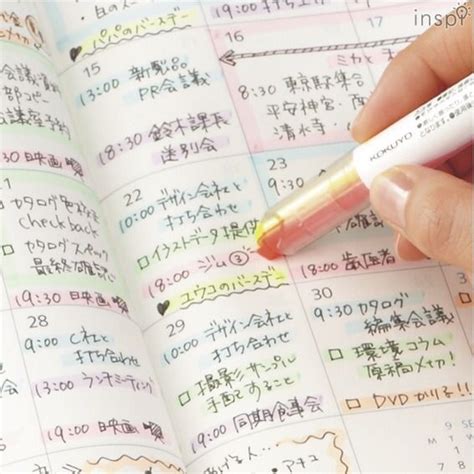 inspi
KOKUYO
パパのバースデー
15
13:00 新製品
PR会議
18:30 鈴木課長
送別会
16
8:30 東京駅集合
平安神宮・
清水寺・
19:30 映画
22
10:00 デザイン会社と
打ち合わせ
□イラストデータ提供
18:00 ジム③
♥ユウコのバースデー
23
9:30
18:30 歯医者
□カタログ
Check back
□カタログ
最終
19:30 映画
28
9:00 C社と
打ち合わせ
13:00 ランチミーティング
19:00 映画
29
10:00 デザイン会社と
打ち合わせ
□撮影サンプル
手配すること
19:00 同期食事会
30
9:00 カタログ
編集会議
□環境コラム
原稿〆切!
□DVDかりる!!